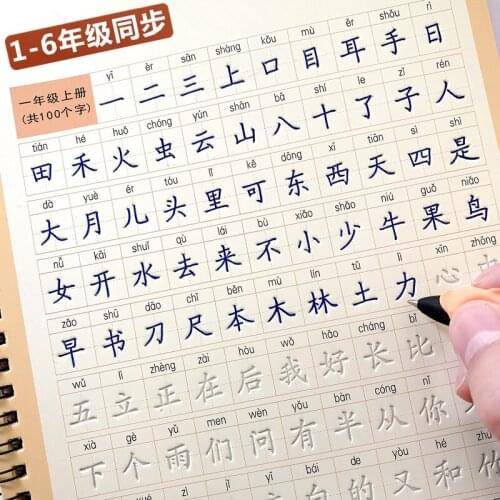 1-6年级同步
yī èr sān shàng kǒu mù ěr shǒu rì
一年级上册
(共100个字)
一 二 三 上 口 目 耳 手 日
tián hé huǒ chóng yún shān bā shí le zǐ rén
田 禾 火 虫 云 山 八 十 了 子 人
dà yuè ér tóu lǐ kě dōng xī tiān sì shì
大 月 儿 头 里 可 东 西 天 四 是
nǚ kāi shuǐ qù lái bù xiǎo shǎo niú guǒ niǎo
女 开 水 去 来 不 小 少 牛 果 鸟
zǎo shū dāo chǐ běn mù lín tǔ lì xīn zhōng
早 书 刀 尺 本 木 林 土 力 心 中
wǔ lì zhèng zài hòu wǒ hǎo cháng bǐ
五 立 正 在 后 我 好 长 比
xià gè yǔ men wèn yǒu bàn cóng nǐ
下 个 雨 们 问 有 半 从 你
yǐ bái de yòu hé
白 的 又 和